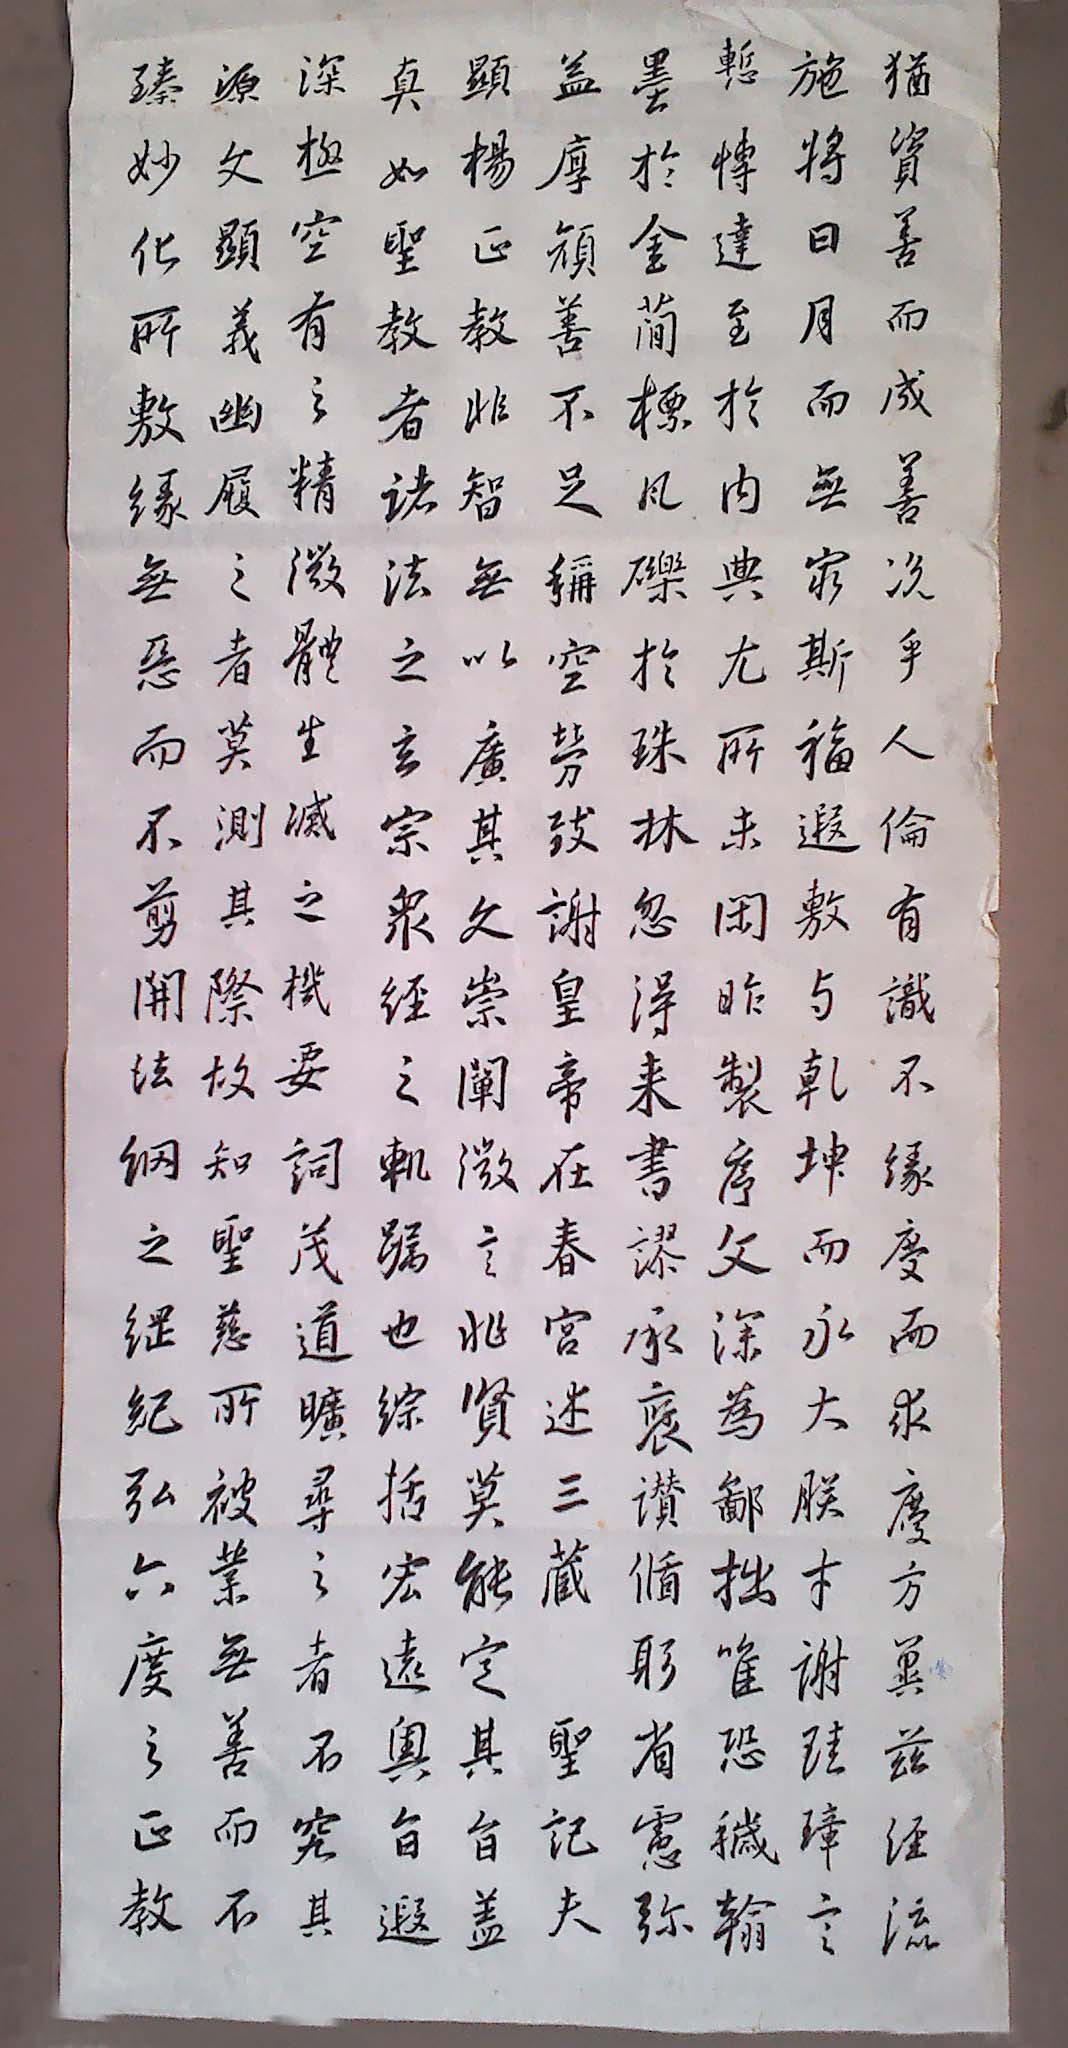 猶資善而成善況乎人倫有識不緣慶而求慶方冀茲經流
施將日月而無窮斯福遐敷与乾坤而永大朕才謝珪璋言
慙博達至於內典尤所未閑昨製序文深為鄙拙唯恐穢翰
墨於金簡標瓦礫於珠林忽得来書謬承褒讃循躬省慮弥
益厚顔善不足稱空勞致謝皇帝在春宮述三藏聖記夫
顯楊正教非智無以廣其文崇闡微言非賢莫能定其旨蓋
真如聖教者諸法之玄宗衆經之軌躅也綜括宏遠奧旨遐
深極空有之精微體生滅之機要詞茂道曠尋之者不究其
源文顯義幽履之者莫測其際故知聖慈所被業無善而不
臻妙化所敷緣無惡而不剪開法網之綱紀弘六度之正教